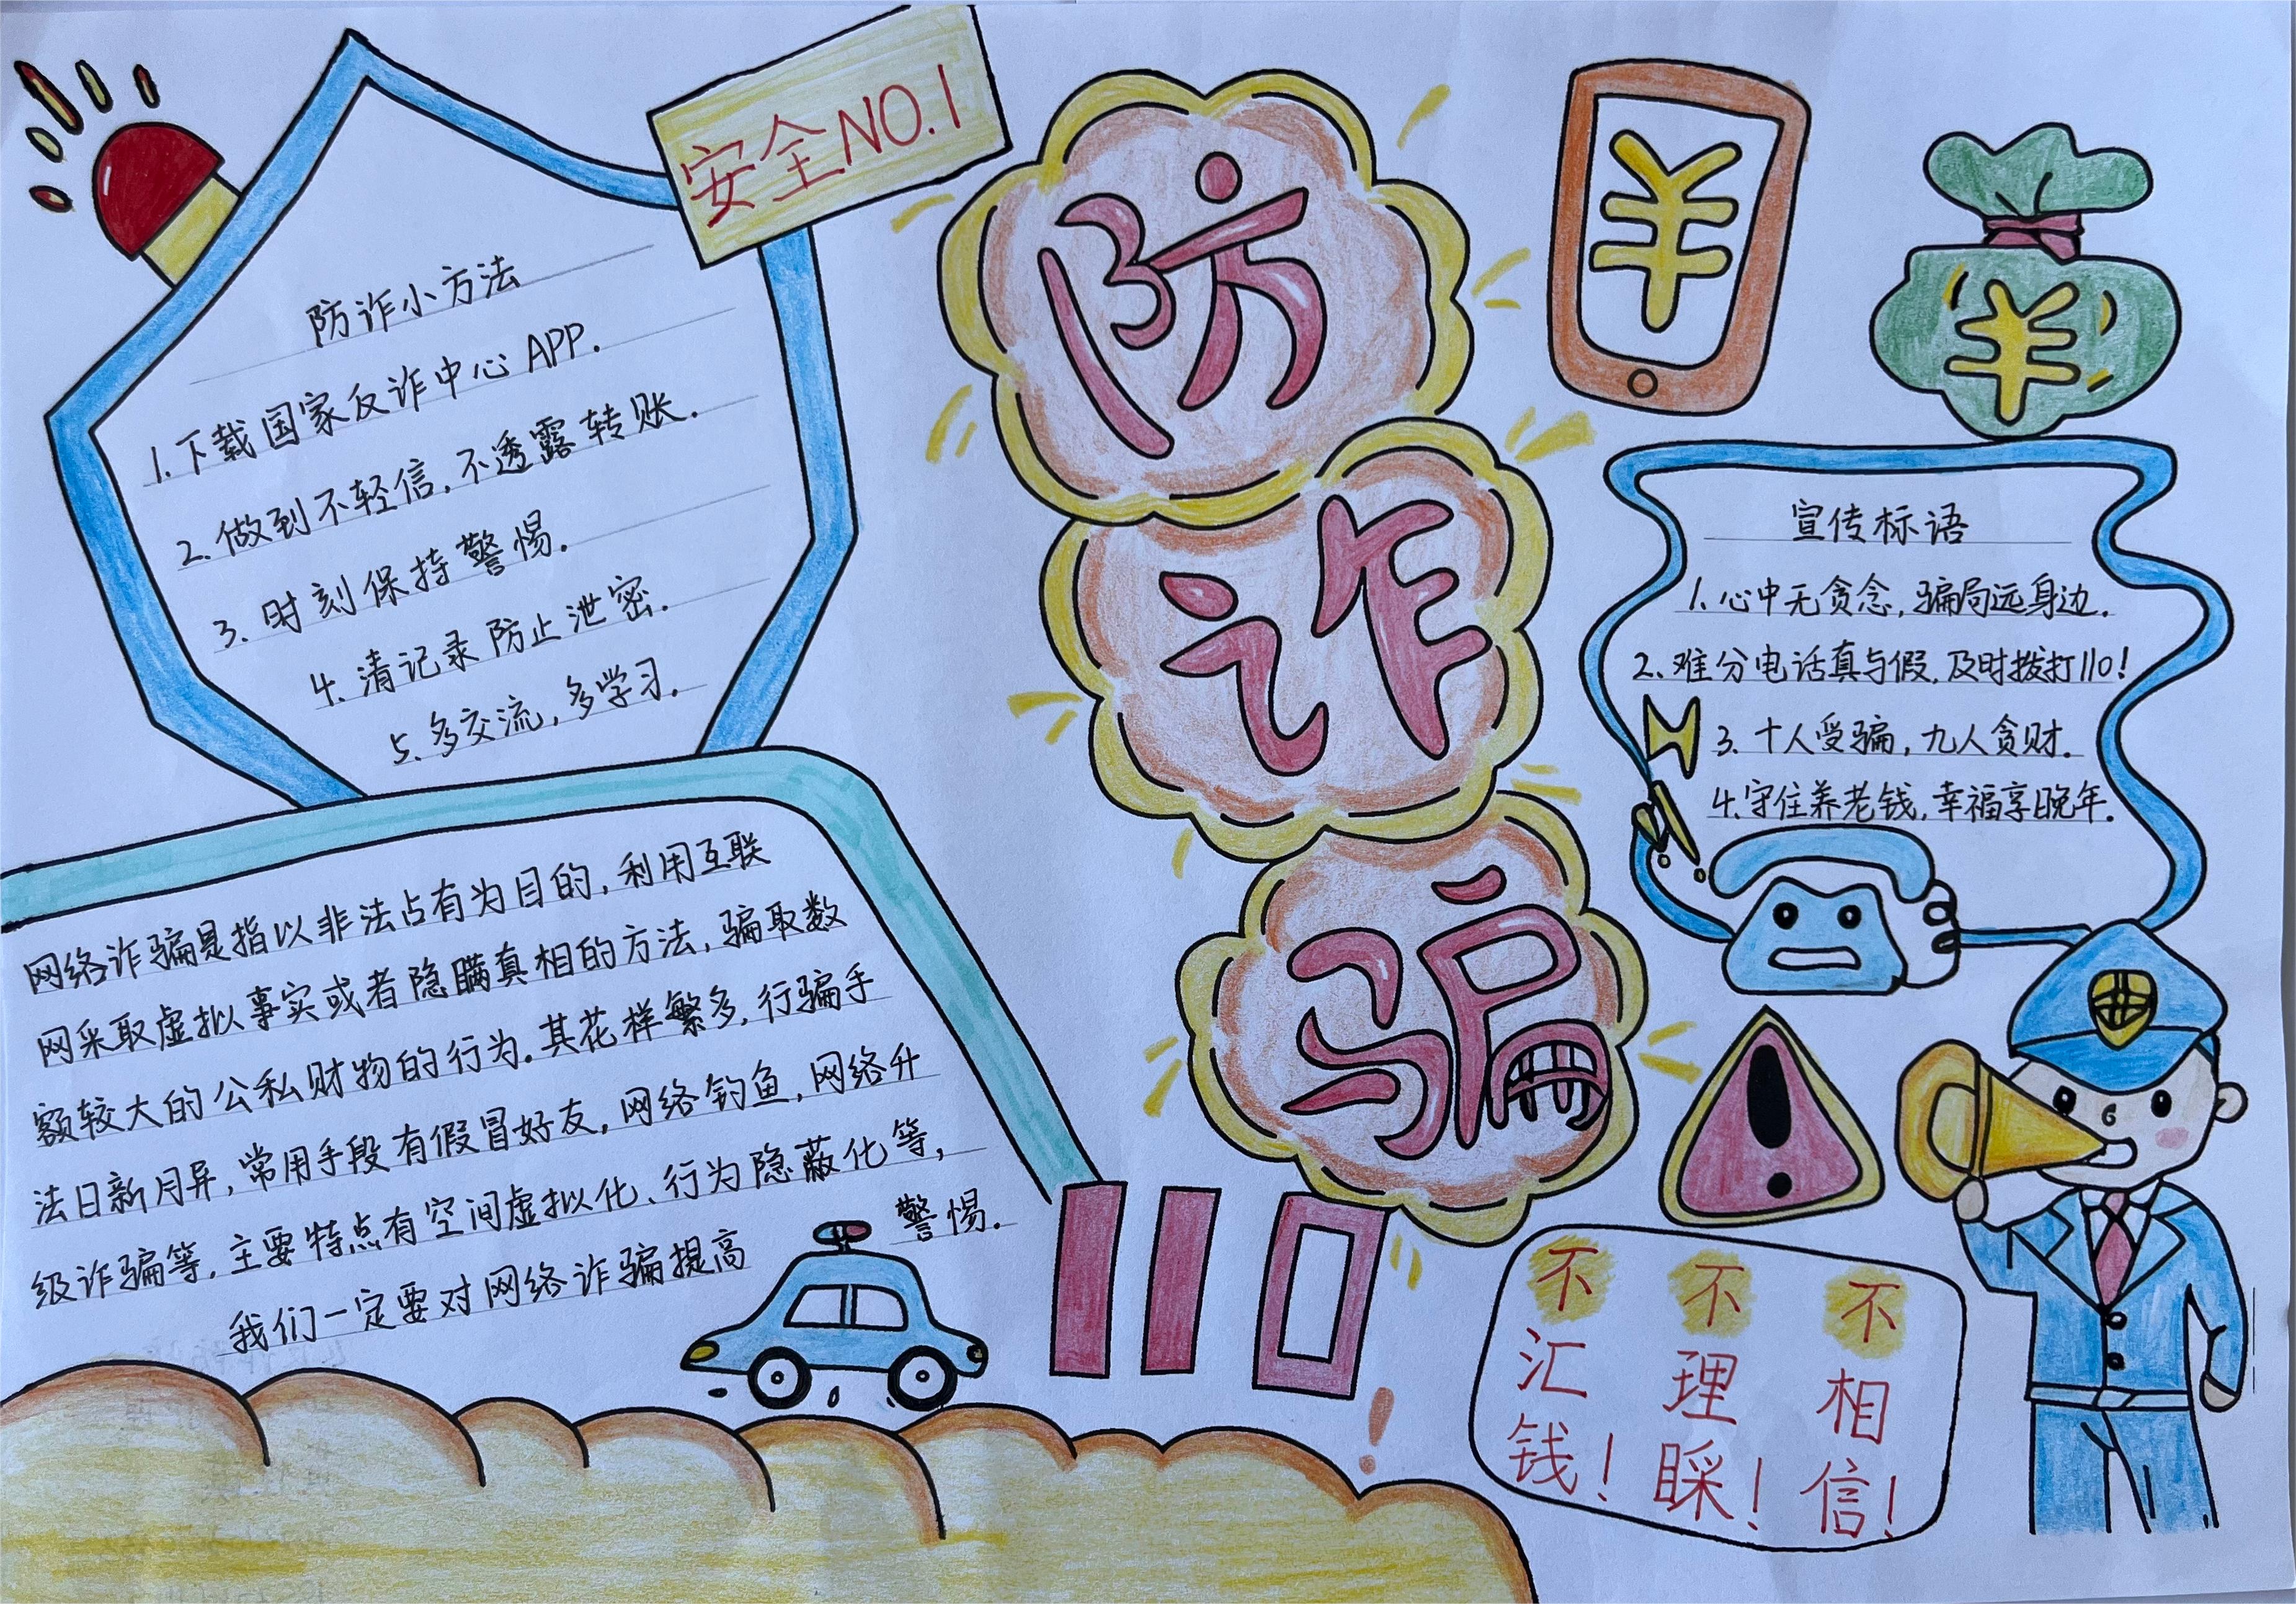 安全NO.1
防诈小方法
1.下载国家反诈中心APP.
2.做到不轻信,不透露转账.
3.时刻保持警惕.
4.清记录防止泄密.
5.多交流,多学习.
网络诈骗是指以非法占有为目的,利用互联
网采取虚拟事实或者隐瞒真相的方法,骗取数
额较大的公私财物的行为.其花样繁多,行骗手
法日新月异,常用手段有假冒好友,网络钓鱼,网络升
级诈骗等,主要特点有空间虚拟化、行为隐蔽化等,
我们一定要对网络诈骗提高 警惕.
防
诈
骗
110!
¥
¥
宣传标语
1.心中无贪念,骗局远身边.
2.难分电话真与假,及时拨打110!
3.十人受骗,九人贪财.
4.守住养老钱,幸福享晚年.
!
不相信!
不理睬!
不汇钱!